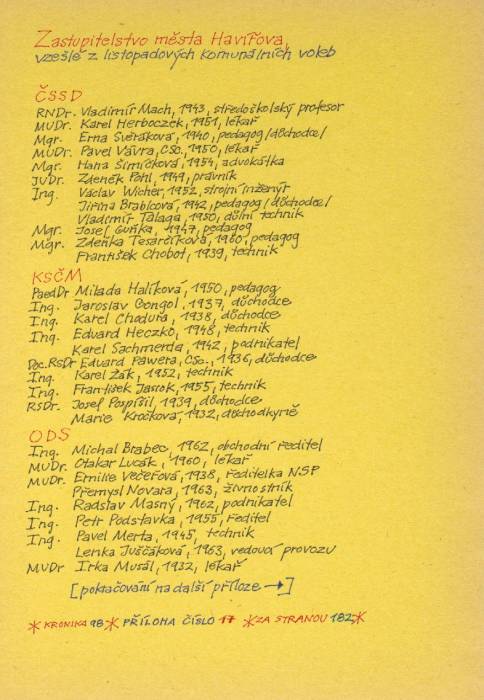 Zastupitelstvo města Havířova,
vzešlé z listopadových komunálních voleb
ČSSD
RNDr. Vladimír Mach, 1943, středoškolský profesor
MUDr. Karel Herboczek, 1951, lékař
Mgr. Erna Švéráková, 1940, pedagog/důchodce/
MUDr. Pavel Vávra, CSc. 1950, lékař
Mgr. Hana Šimíčková, 1954, advokátka
JUDr. Zdeněk Pohl, 1949, právník
Ing. Václav Wicher, 1952, strojní inženýr
Jiřina Brablcová, 1942, pedagog/důchodce/
Vladimír Talaga, 1950, důlní technik
Mgr. Josef Guňka, 1947, pedagog
Mgr. Zdeňka Tesarčíková, 1960, pedagog
František Chobot, 1939, technik
KSČM
PaedDr Milada Halíková, 1950, pedagog
Ing. Jaroslav Gongol, 1937, důchodce
Ing. Karel Chodura, 1938, důchodce
Ing. Eduard Heczko, 1948, technik
Karel Sachmerda, 1942, podnikatel
Doc. RsDr Eduard Pawera, CSc., 1936, důchodce
Ing. Karel Žák, 1952, technik
Ing. František Jasiok, 1955, technik
RSDr. Josef Pospíšil, 1939, důchodce
Marie Kročková, 1932, důchodkyně
ODS
Ing. Michal Brabec, 1962, obchodní ředitel
MUDr. Otakar Lucák, 1960, lékař
MUDr. Emilie Večeřová, 1938, ředitelka NSP
Přemysl Novara, 1963, živnostník
Ing. Radslav Masný, 1962, podnikatel
Ing. Petr Podstavka, 1955, ředitel
Ing. Pavel Merta, 1945, technik
Lenka Juščáková, 1963, vedoucí provozu
MUDr Irka Musál, 1932, lékař
[pokračování na další příloze →]
* KRONIKA 98 * PŘÍLOHA ČÍSLO 17 * ZA STRANOU 182 *